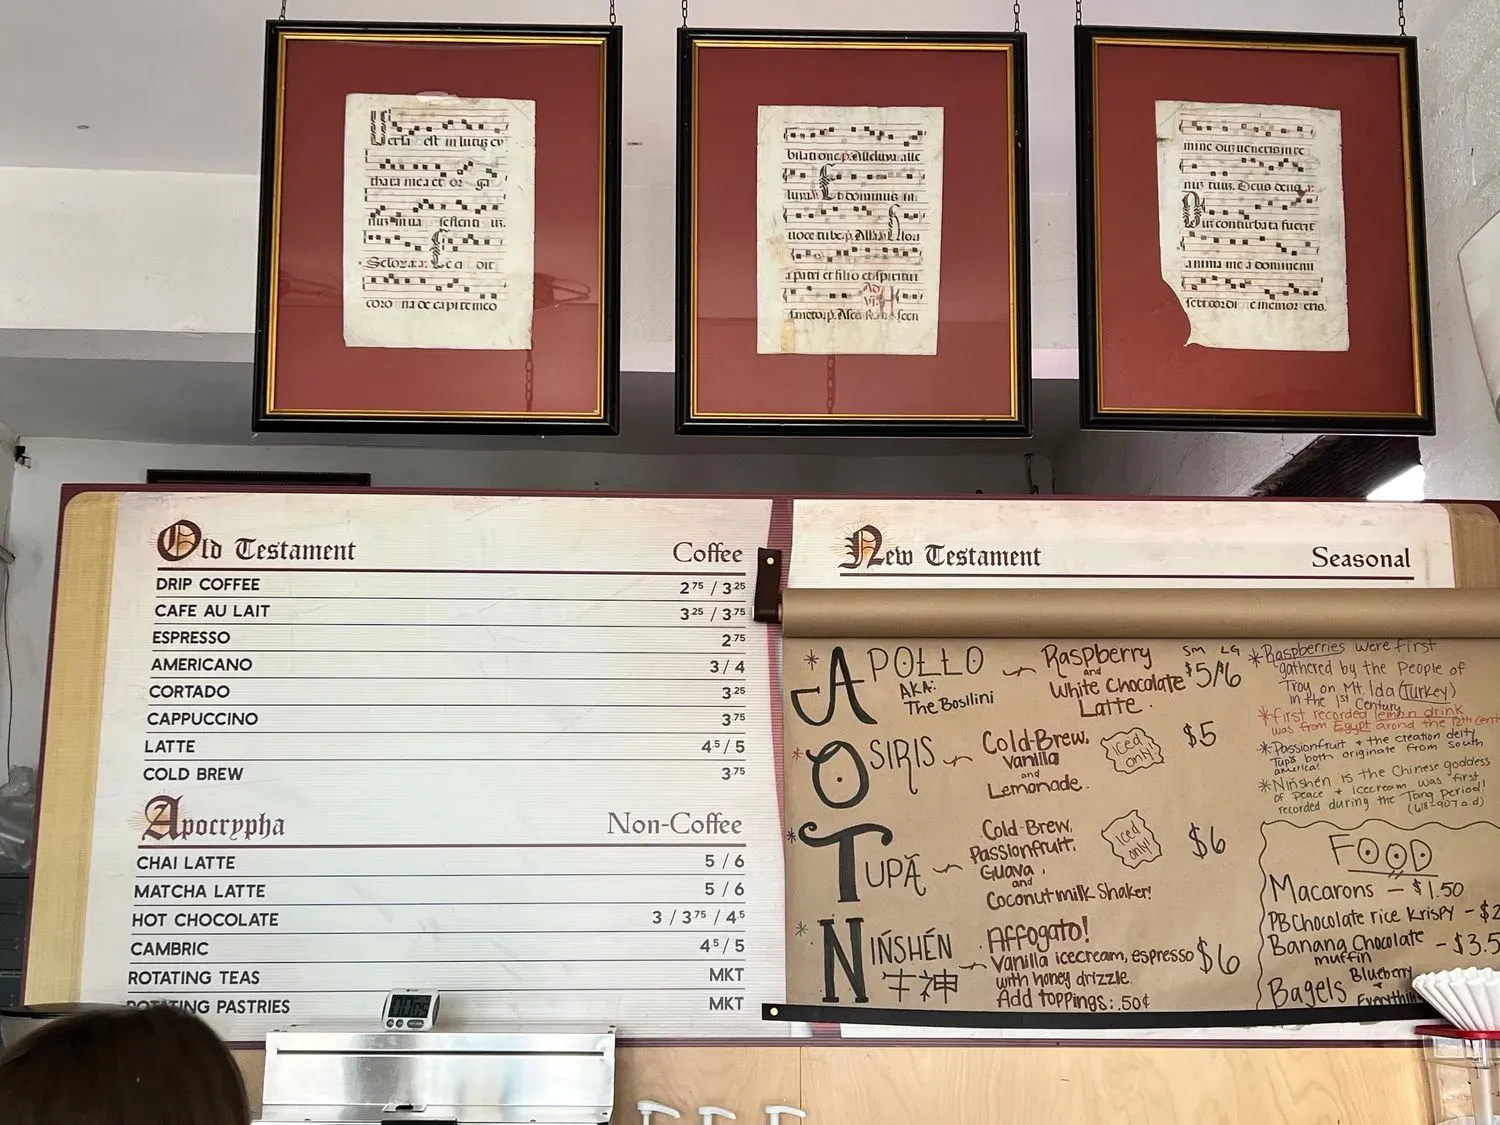 Versa est in luctuz cy
thara mea et or ga
num in ua
coro na de capite meo
bilatione p. Alleluya alle
luya. Et dominus in
uoce tube p. Alla
a patri et filio et spiritui
sancto p.
nus tuus. Deus
conturbata fuerit
anima mea dominum
Old Testament Coffee
DRIP COFFEE 2.75 / 3.25
CAFE AU LAIT 3.25 / 3.75
ESPRESSO 2.75
AMERICANO 3 / 4
CORTADO 3.25
CAPPUCCINO 3.75
LATTE 4.5 / 5
COLD BREW 3.75
Apocrypha Non-Coffee
CHAI LATTE 5 / 6
MATCHA LATTE 5 / 6
HOT CHOCOLATE 3 / 3.75 / 4.5
CAMBRIC 4.5 / 5
ROTATING TEAS MKT
ROTATING PASTRIES MKT
New Testament Seasonal
SM LG
APOLLO ~ Raspberry $5/$6
AKA: and
The Bosilini White Chocolate
Latte.
OSIRIS ~ Cold-Brew, Iced only! $5
Vanilla
and
Lemonade.
TUPÃ ~ Cold-Brew, Iced only! $6
Passionfruit,
Guava,
and
Coconutmilk Shaker!
NIŃSHÉN ~ Affogato! $6
Vanilla icecream, espresso
with honey drizzle.
Add toppings: .50¢
*Raspberries were first
gathered by the People of
Troy on Mt. Ida (Turkey)
in the 1st Century
*First recorded lemon drink
was from Egypt arond the 12th cent
*Passionfruit + the creation deity
Tupã both originate from South
america!
*Ninshén is the Chinese goddess
of Peace + icecream was first
recorded during the Tang Period!
(618-907 a.d)
FOOD
Macarons — $1.50
PB Chocolate rice Krispy - $2
Banana Chocolate - $3.5
muffin
Bagels Blueberry
+
Everything